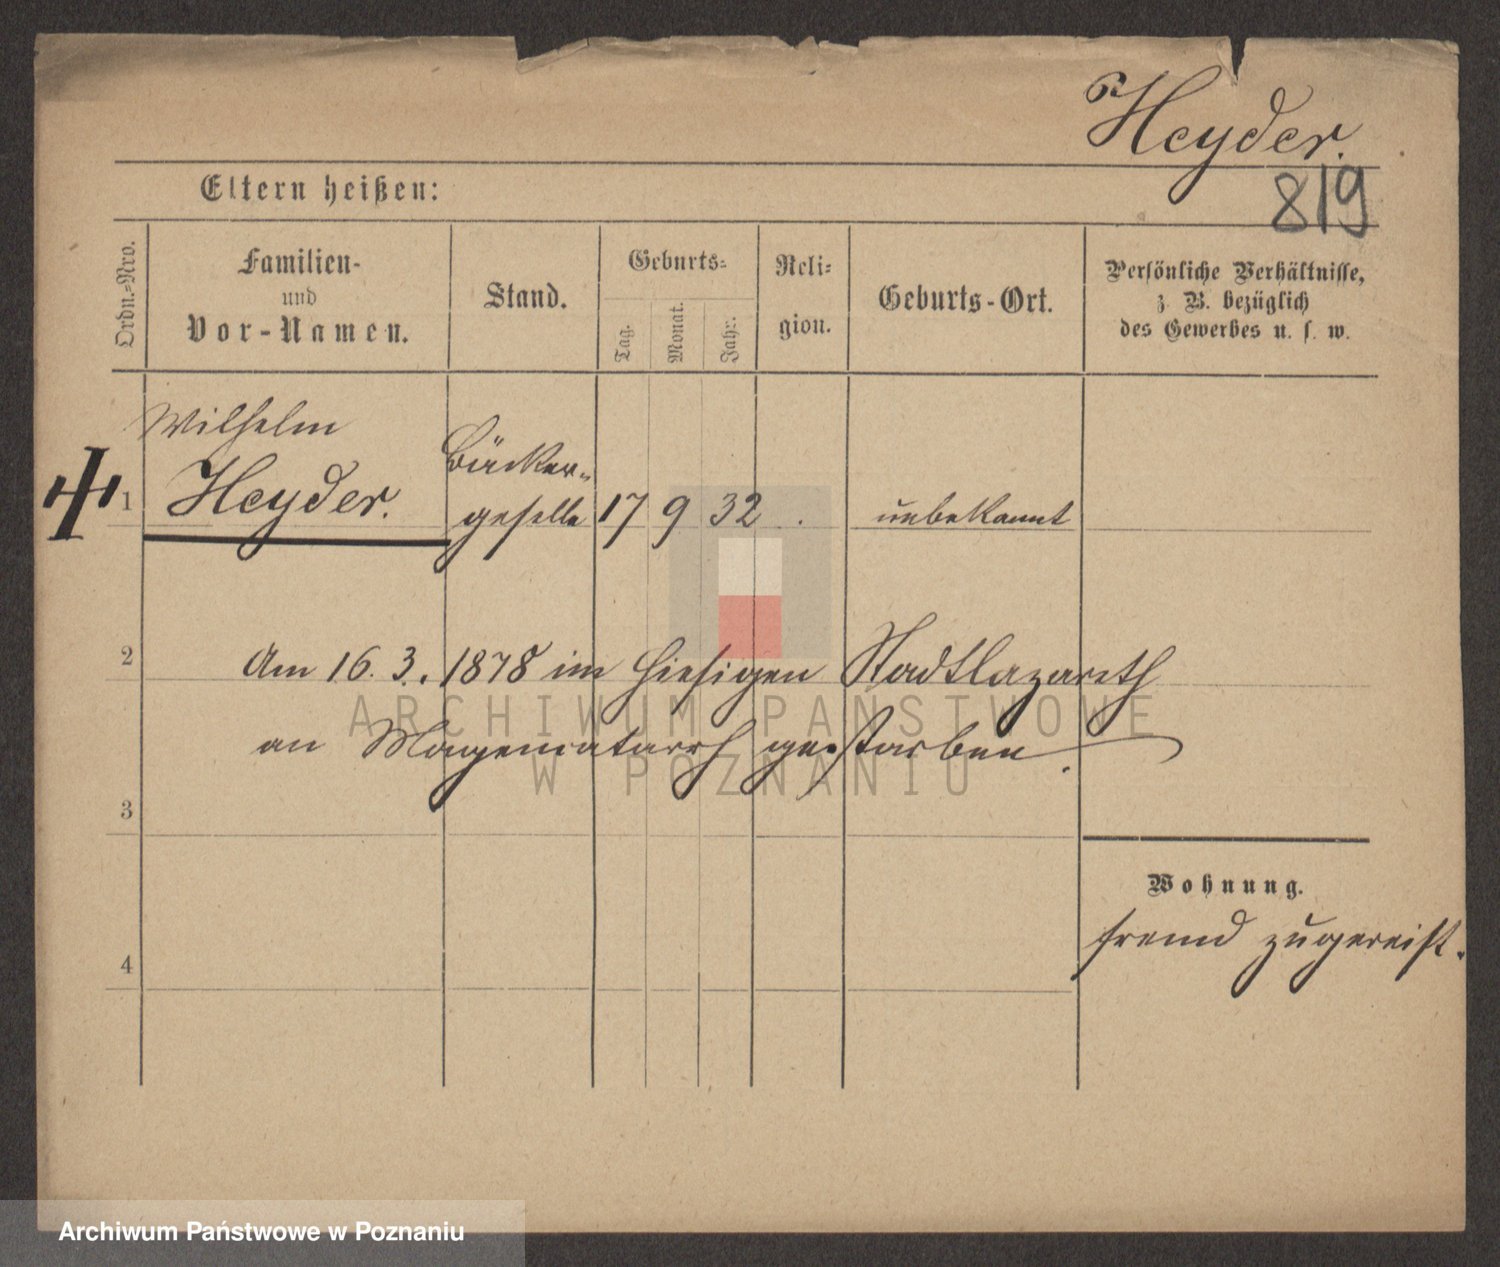 Heyder.
819
Eltern heißen:
Ordn.-Nro.
Familien-
und
Vor-Namen.
Stand.
Geburts-
Tag.
Monat.
Jahr.
Reli-
gion.
Geburts-Ort.
Persönliche Verhältnisse,
z. B. bezüglich
des Gewerbes u. s. w.
Wilhelm
Heyder.
Bäcker-
geselle
1 17 9 32. unbekannt
2 Am 16. 3. 1878 im hiesigen Stadtlazareth
an Magenkatarrh gestorben.
3
Wohnung.
fremd zugereist.
4
ARCHIWUM PAŃSTWOWE
W POZNANIU
Archiwum Państwowe w Poznaniu